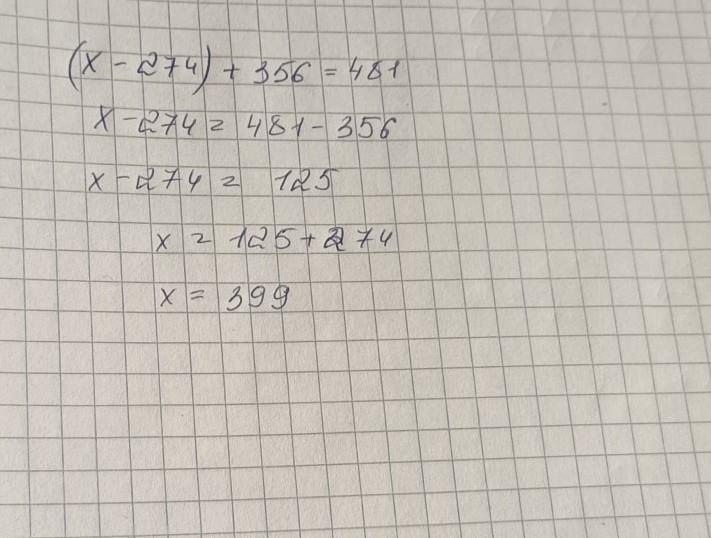 (x - 274) + 356 = 481
x - 274 = 481 - 356
x - 274 = 125
x = 125 + 274
x = 399